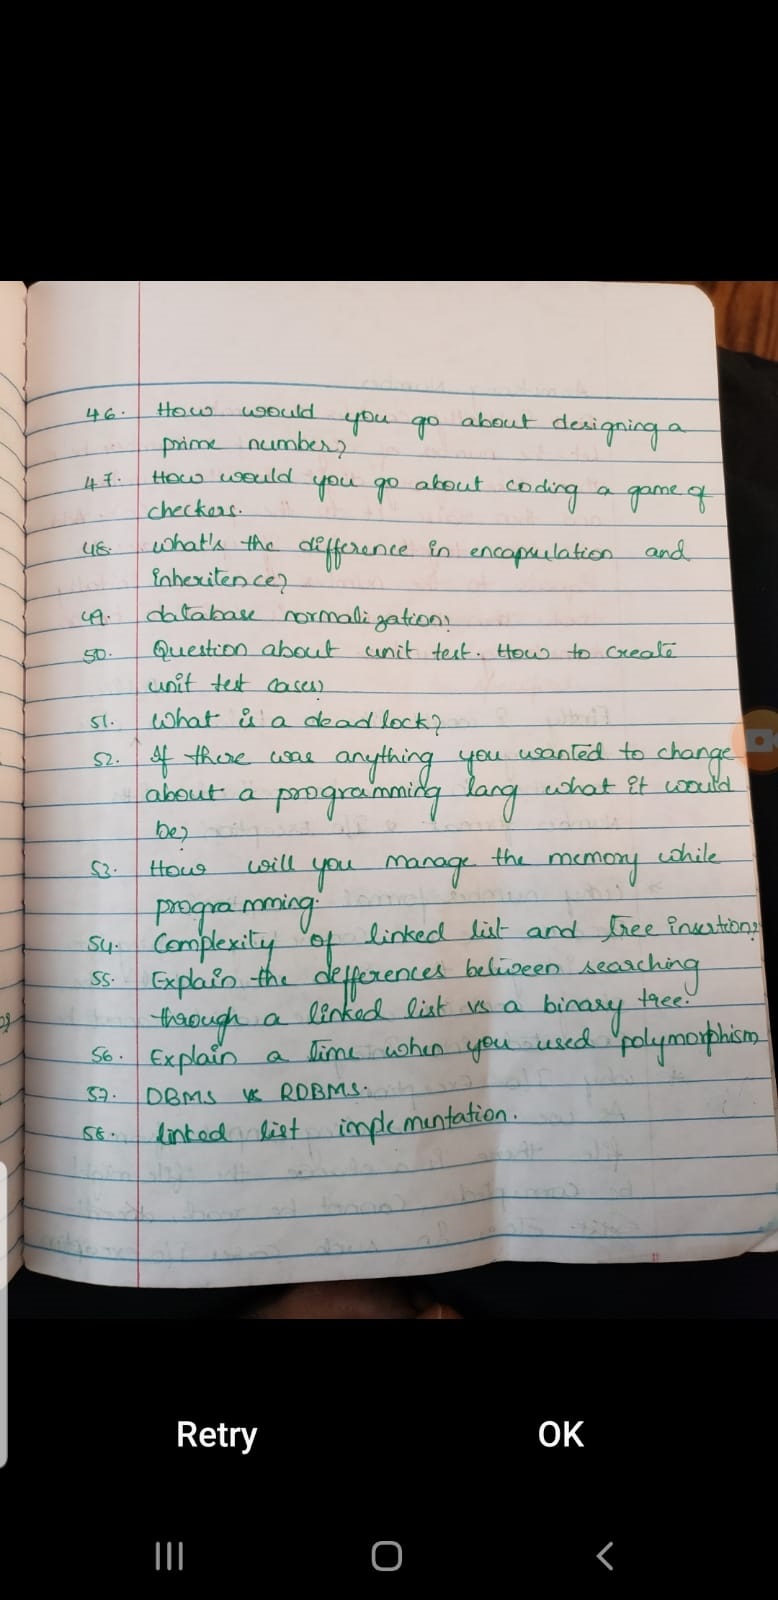 46. How would you go about designing a
prime number?
47. How would you go about coding a game of
checkers.
48. What's the difference in encapsulation and
inheritence?
49. database normalization?
50. Question about unit test. How to create
unit test cases?
51. What is a dead lock?
52. If there was anything you wanted to change
about a programming lang what it would
be?
53. How will you manage the memory while
programming.
54. Complexity of linked list and tree insertion?
55. Explain the defferences between searching
through a linked list vs a binary tree.
56. Explain a time when you used polymorphism
57. DBMS vs RDBMS.
58. linked list implementation.
Retry OK